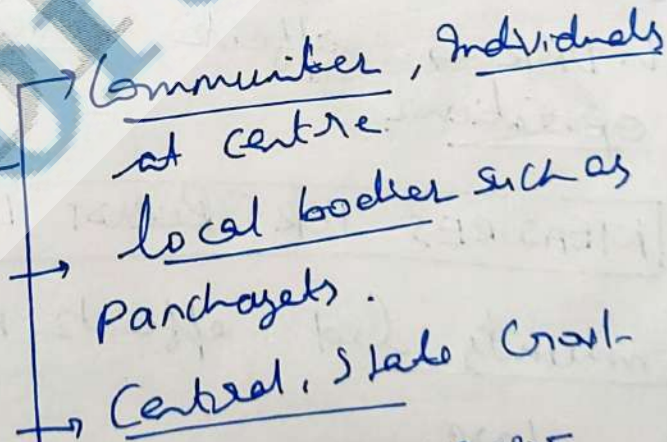 → Communities, Individuals
at centre
→ local bodies such as
Panchayats.
→ Central, State Govt